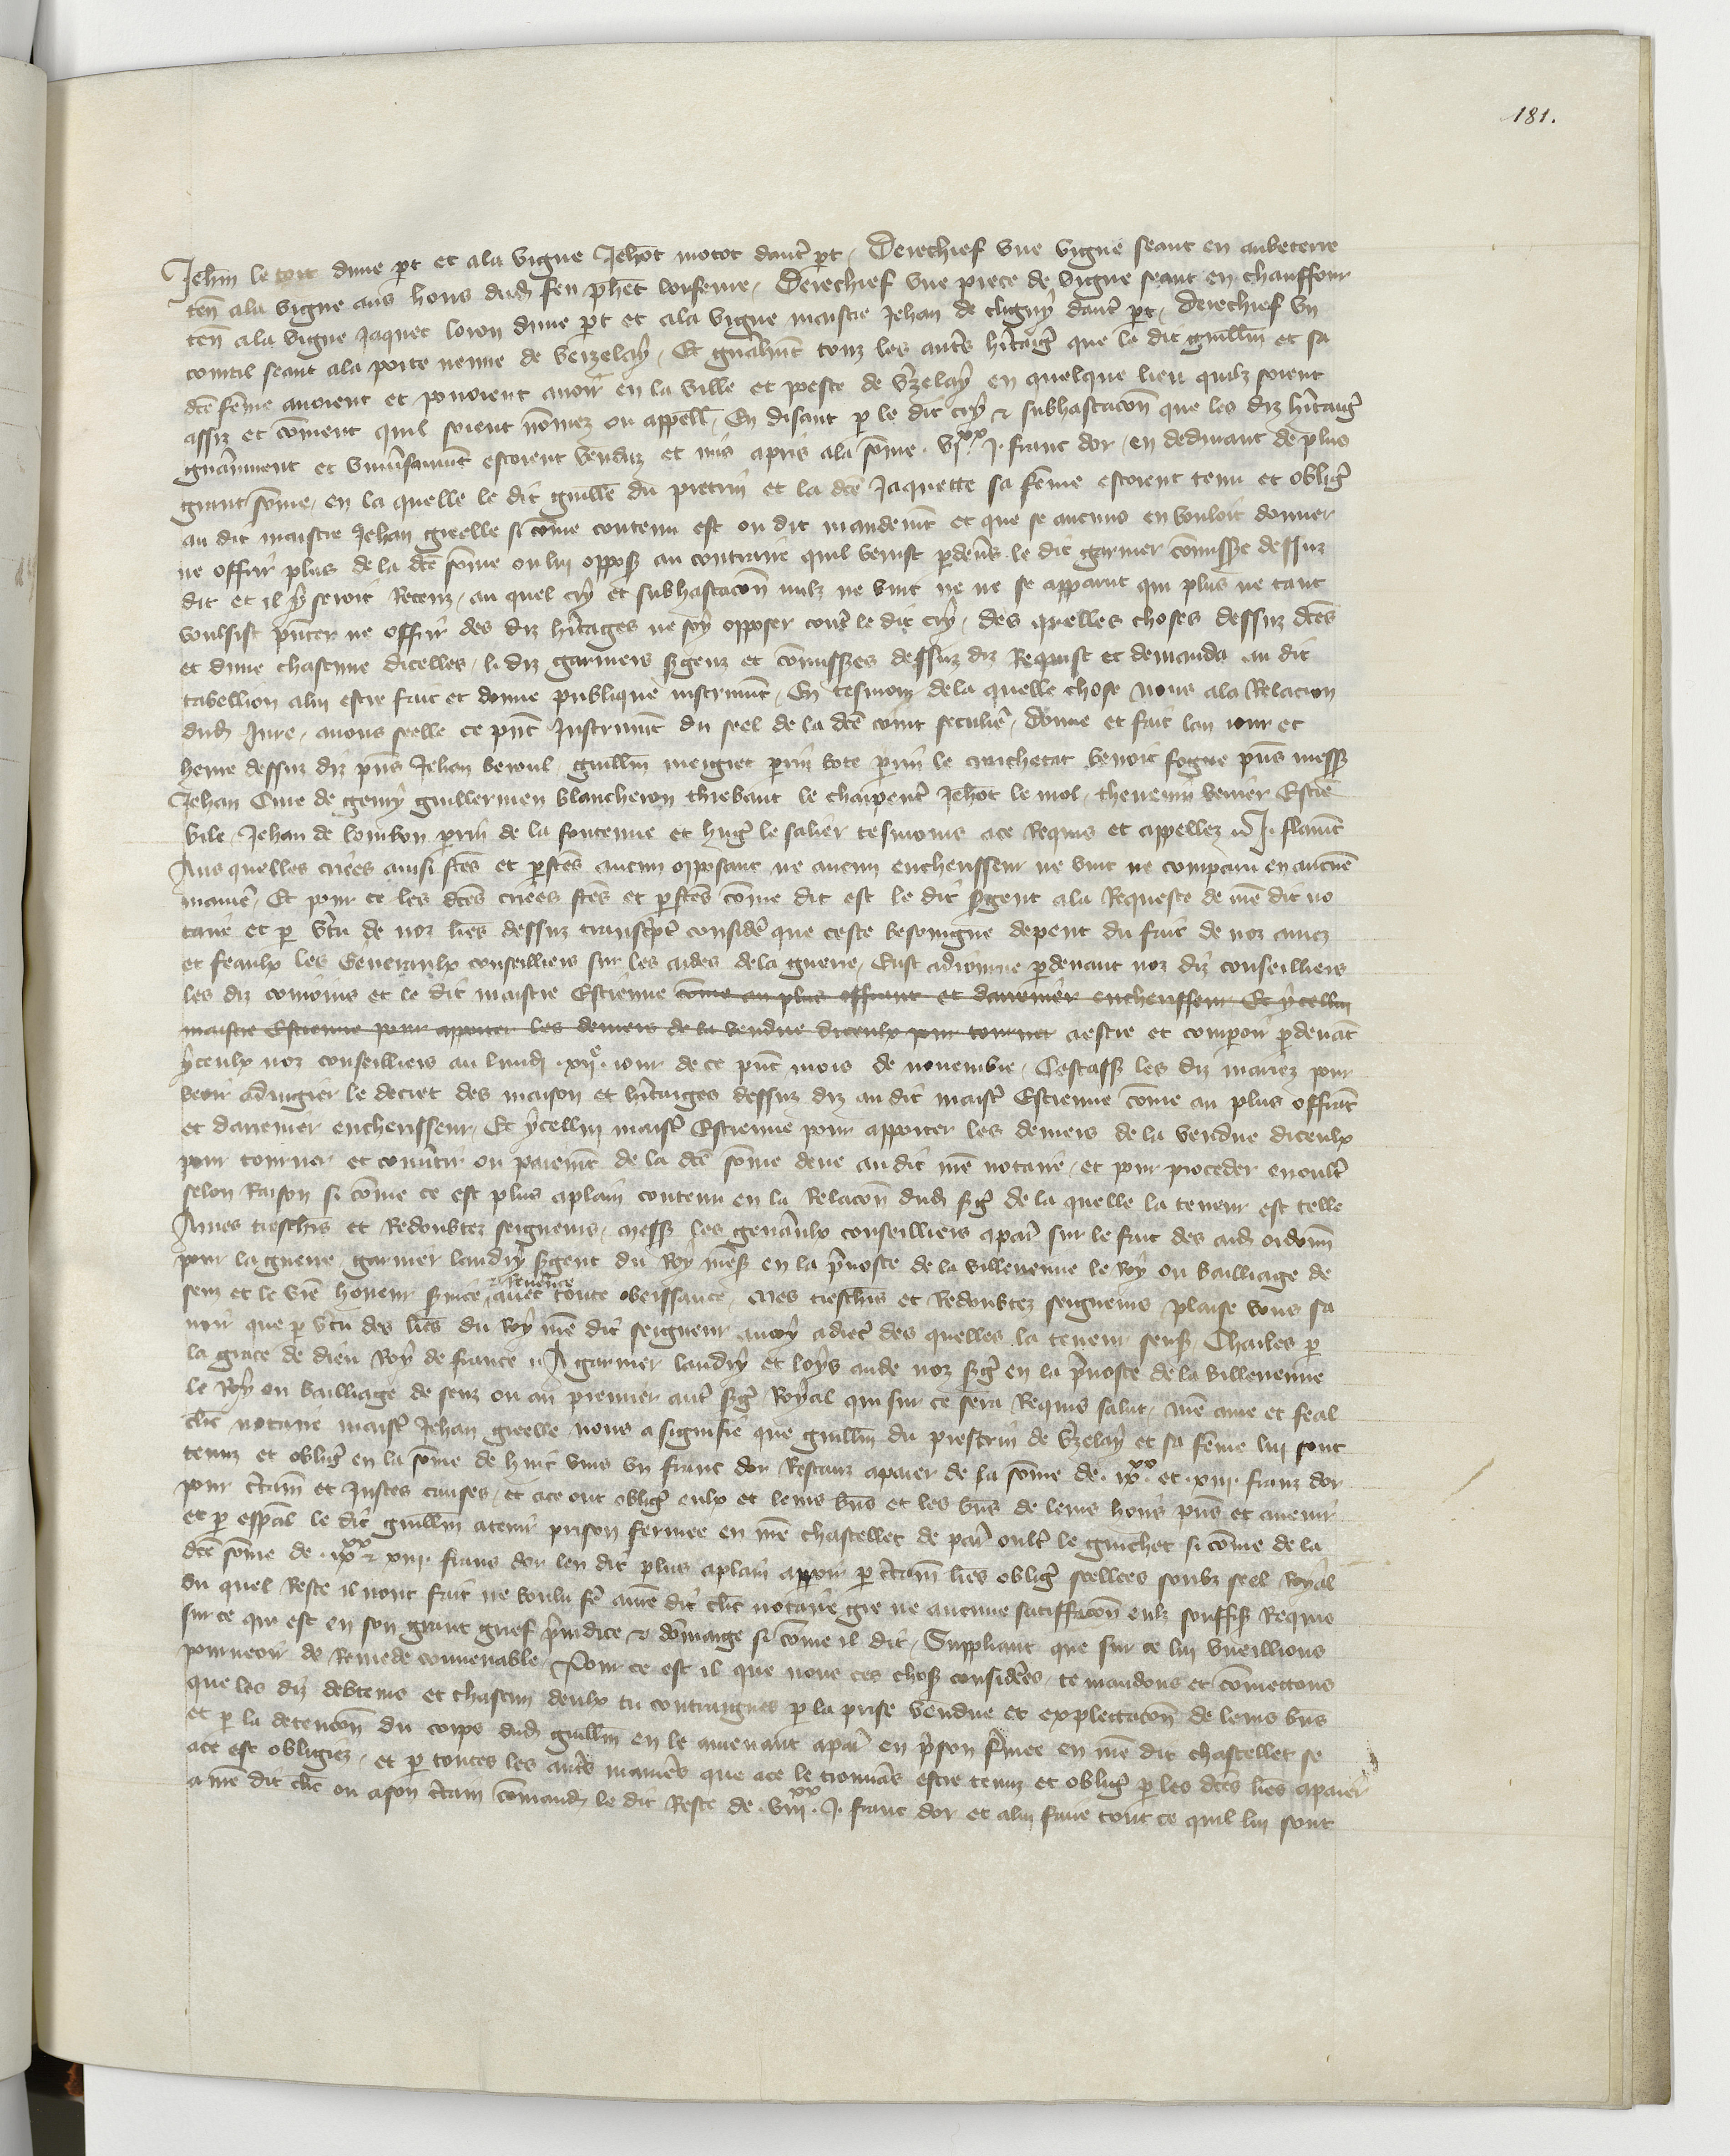 181.
Jehñ le tort dune pt et ala vigne Jehot motot daut pt, Derechief une vigne seant en aubeterre
ten ala vigne aus hoirs dud feu phet, Derechief une piece de vigne seant en chauffour
ten ala vigne Jaquet loron dune pt et ala vigne maistre Jehan de clugny daut pt, derechief un
courtil seant ala porte nenue de verzelay, Et gnalmt touz les auts hitaigs que le dit guillm et sa
dce feme avoient et povoient avoir en la ville et poeste de vzelay en quelque lieu quilz soient
assiz et coment quil soient nomez ou appell, En disant p le dit cry & subhastacon que les diz hitaigs
gnaument et univsaumt estoient venduz et mis apris ala some . vi.xx j. franc dor, en deduiant de plus
grant some, en la quelle le dit guille du pretrin et la dce Jaquette sa feme estoient tenu et oblig
au dit maistre Jehan greelle si come contenu est ou dit mandemt et que se aucuns en vouloit donner
ne offrir plus de la dce some ou lui opposs au contraire quil venist pdevs le dit garnier comisse dessuz
dit et il y seroit Receuz, au quel cry et subhastacon nulz ne vint ne ne se apparut qui plus ne tant
voulsist pnter ne offrir des diz hitages ne soy opposer cont le dit cry, des quelles choses dessuz dces
et dune chascune dicelles, li diz garniers sgenz et comisses dessuz diz Requist et demanda au dit
tabellion alui estre fait et donne publique instrumt, En tesmoin dela quelle chose nous ala Relacion
dud Jure, avons seelle ce pnt Instrumt du seel de la dce court seculie, donne et fait lan jour et
heure dessuz diz pns Jehan beroul guillm meigret prin bote prin le benoit fogue pns mess
Jehan Cure de guillermen blancheron thiebaut le charpent Jehot le mol, thevenin verier Estie
vile, Jehan de lombon prin de la fonteine et hug le salier tesmoins ace Requis et appellez
Aus quelles criees ainsi fces et pfces aucun opposant ne aucun encherisseur ne vint ne comparu en aucune
maniē, Et pour ce les dces criees fces et pfces come dit est le dit sgent ala Requeste de me dit no
taire et p vtu de noz lres dessuz transcptes conside que ceste besoingne depent du fait de noz amez
et feaulx les Generaulx conseilliers sur les aides dela guerre, Eust adiourne pdevant noz diz conseilliers
les diz conioins et le dit maistre Estienne come au plus offrant et darrenier encherisseur Et ycellui
maistre Estienne pour apporter les deniers de la vendue diceulx pour tourner aestre et comparoir pdevat
yceulx noz conseilliers au lund .xije. jour de ce pnt mois de novembre, Cestass les diz mariez pour
veoir adiugier le decret des maison et hitaiges dessuz diz au dit maist Estienne come au plus offrat
et darrenier encherisseur, Et ycellui maist Estienne pour apporter les deniers de la vendue diceulx
pour tourner et convtir ou paiemt de la dce some deue au dit me notaire, et pour proceder enoult
selon Raison si come ce est plus aplain contenu en la Relacon dud sg de la quelle la teneur est telle
Ames treschrs et Redoubtez seigneurs, mess les genaulx conseilliers apais sur le fait des aid ordonn
pour la guerre garnier landry sgent du Roy mess en la pvoste de la villeneuve le Roy ou bailliage de
senz et le vre honeur svice & revence avec toute obeissance, Mes treschrs et Redoubtez seigneurs plaise vous sa
voir que p vtu des lres du Roy me dit seigneur a moy adiec des quelles la teneur senss, Charles p
la grace de dieu Roy de france A garnier landry et loys aude noz sg en la pvoste de la villeneuve
le Roy ou bailliage de senz ou au premier aut sg Royal qui sur ce sera Requis salut, me ame et feal
clec notaire maist Jehan greelle nous a signifie que guillm du prestrin de vzelay et sa feme lui sont
tenuz et oblig en la some de huit vins un franc dor Restans apaier de la some de . ix.xx et .xiii. frans dor
pour ctain et Justes causes, et ace ont oblig eulx et leurs bns et les bns de leurs hoirs pns et avenir
et p espal le dit guillm atenir prison fermee en me chastellet de pais oult le guichet si come de la
dce some de . ix.xx & xiii. frans dor len dit plus aplain apparoir p ctain lres oblig seellees soubz seel Royal
du quel Reste il nont fait ne voulu fe a me dit clec notaire gre ne aucune satiffacon eulz souffis Requis
sur ce qui est en son grant grief piudice & domaige si come il dit, Suppliant que sur ce lui vueillions
pourveoir de Remede convenable, Pour ce est il que nous ces choss considees, te mandons et cometons
que les diz debteurs et chascun deulx tu contraignes p la prise vendue et explectacon de leurs bns
et p la detencon du corps dud guillm en le amenant apais en pson fmee en me dit chastellet se
ace est obligiez, et p toutes les auts manies que ace le trouvas estre tenuz et oblig p les dces lres apaier
a me dit clec ou ason ctain comand le dit Reste de .viii.xx j. franc dor et alui faire tout ce quil lui sont